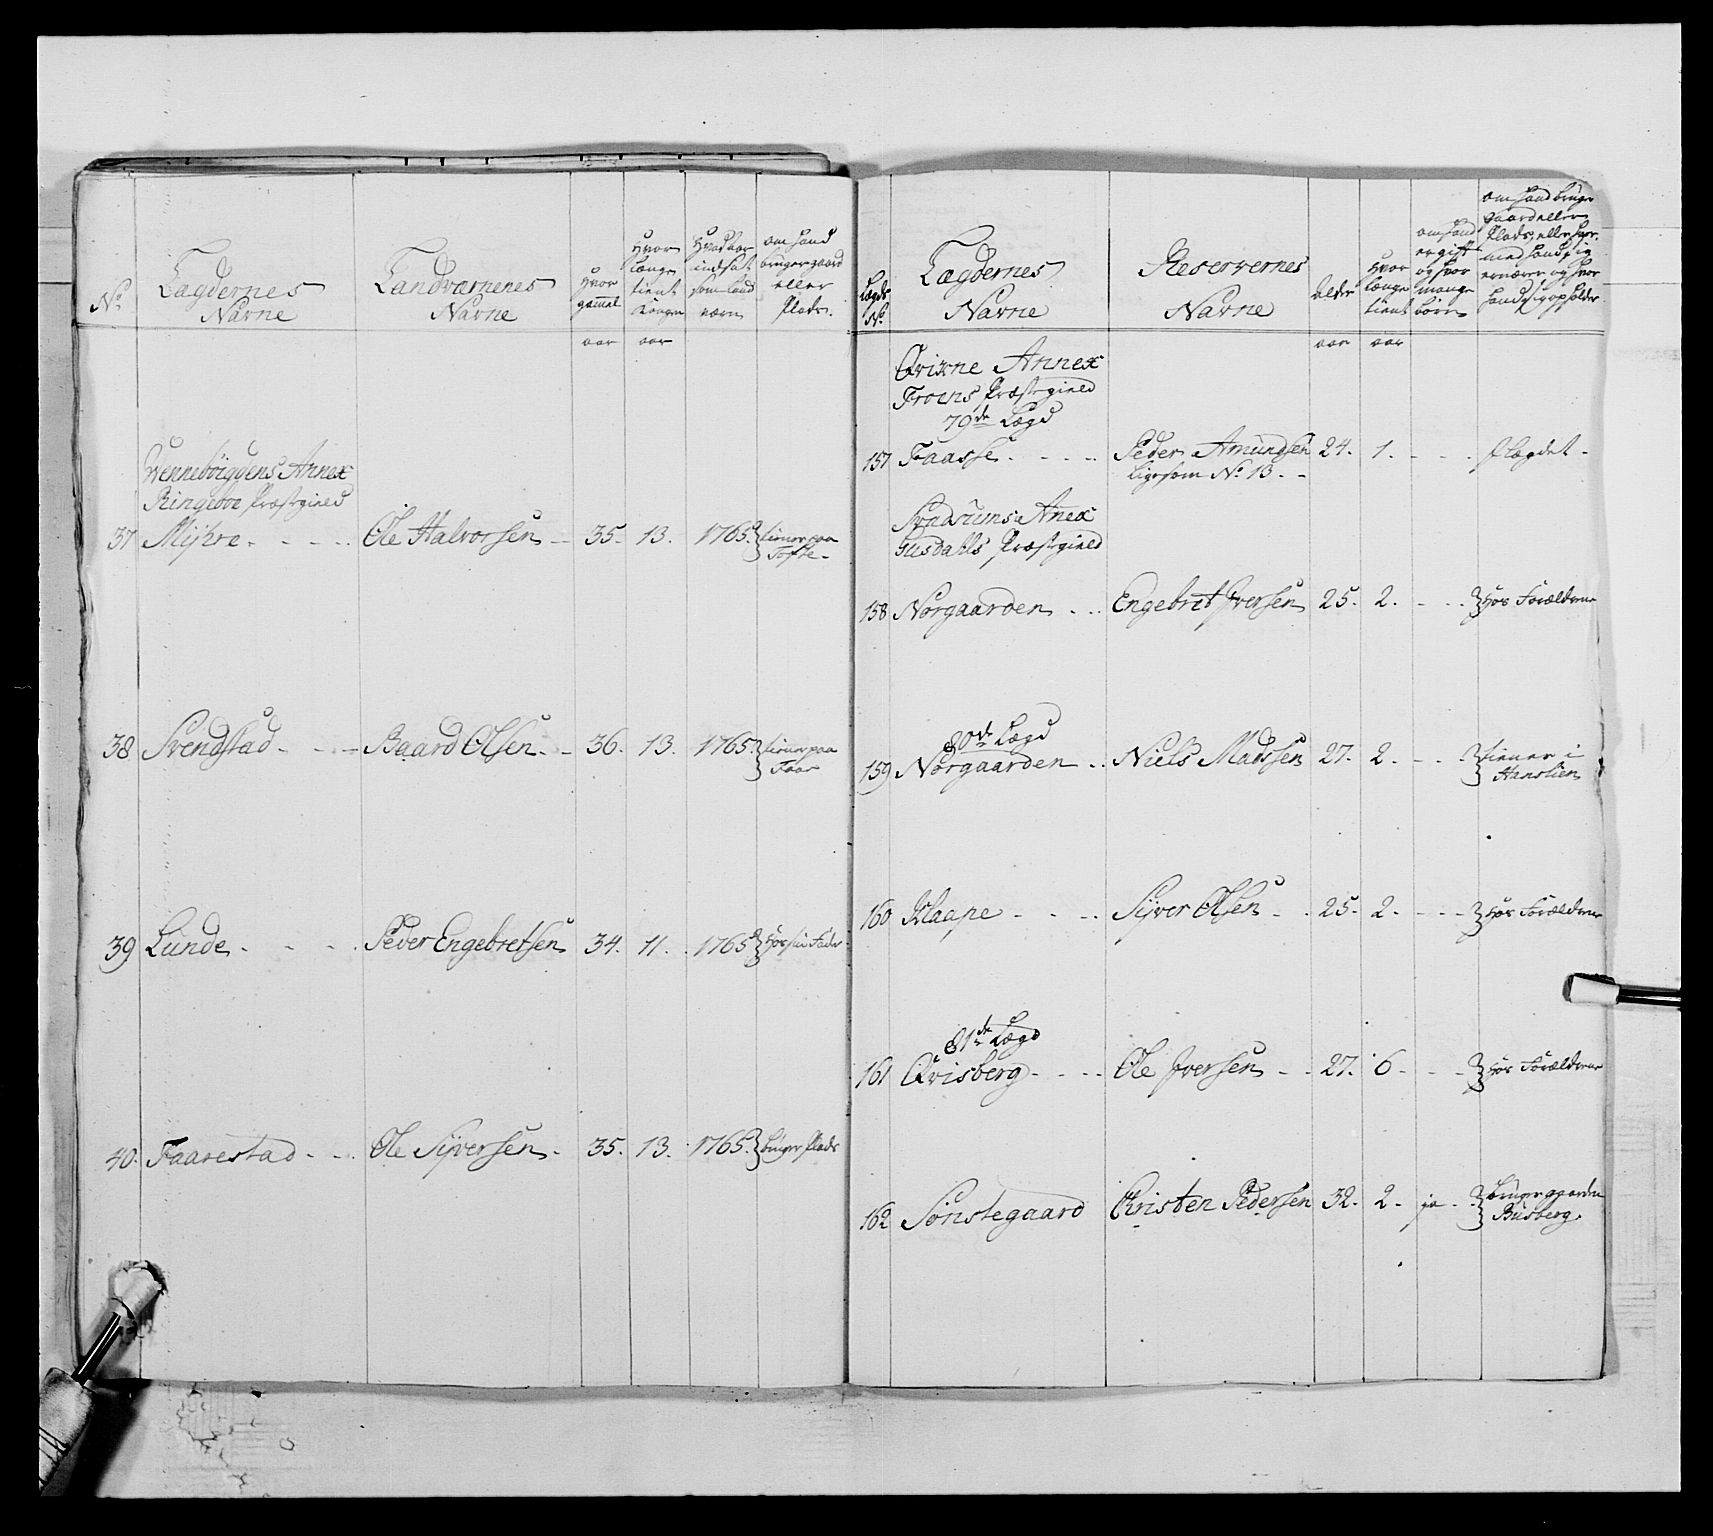 No.
Lægdernes Navne
Landværnenes Navne
Hvor gammel
Hvor længe tient Kongen
Hvad aar indsat som Land værn
om hand bruger gaard eller Plads.
aar aar
Vennebøigdens Annex
Ringeboe Præstegield
37 Mÿhre Ole Halvorsen 35. 13. 1765. tiener paa Tofte
38 Svendstad Baard Olsen 36. 13. 1765. tiener paa Faar
39 Lunde Peder Engebretsen 34. 11. 1765. Hos sin Fader
40. Faarestad Ole Sÿversen 35. 13. 1765. bruger Plads
Lægds No.
Lægdernes Navne
Reservernes Navne
Alder
Hvor længe tient
om hand er gift og hvor mange børn
om hand bruger gaard eller Plads, eller hvormed hand sig ernærer og hvor hand sig opholder
aar aar
Qvixne Annex
Froens Præstegield
79de Lægd
157 Faasse Peder Amundsen 24. 1. fLægdet
Ligesom No. 13.
Svadsums Anex
Gusdahls Præstegield
158 Norgaarden Engebret Iversen 25. 2. Hos Forældrene
80de Lægd
159 Norgaarden Niels Madssen 27. 2. tiener i Hanslien
160 Klaape Sÿver Olsen 25. 2. Hos Forældrene
81de Lægd
161 Qvisberg Ole Iversen 27. 6. Hos Forældrene
162 Sønstegaard Christen Pedersen 32. 2. ja bruger gaarden Bùsberg.